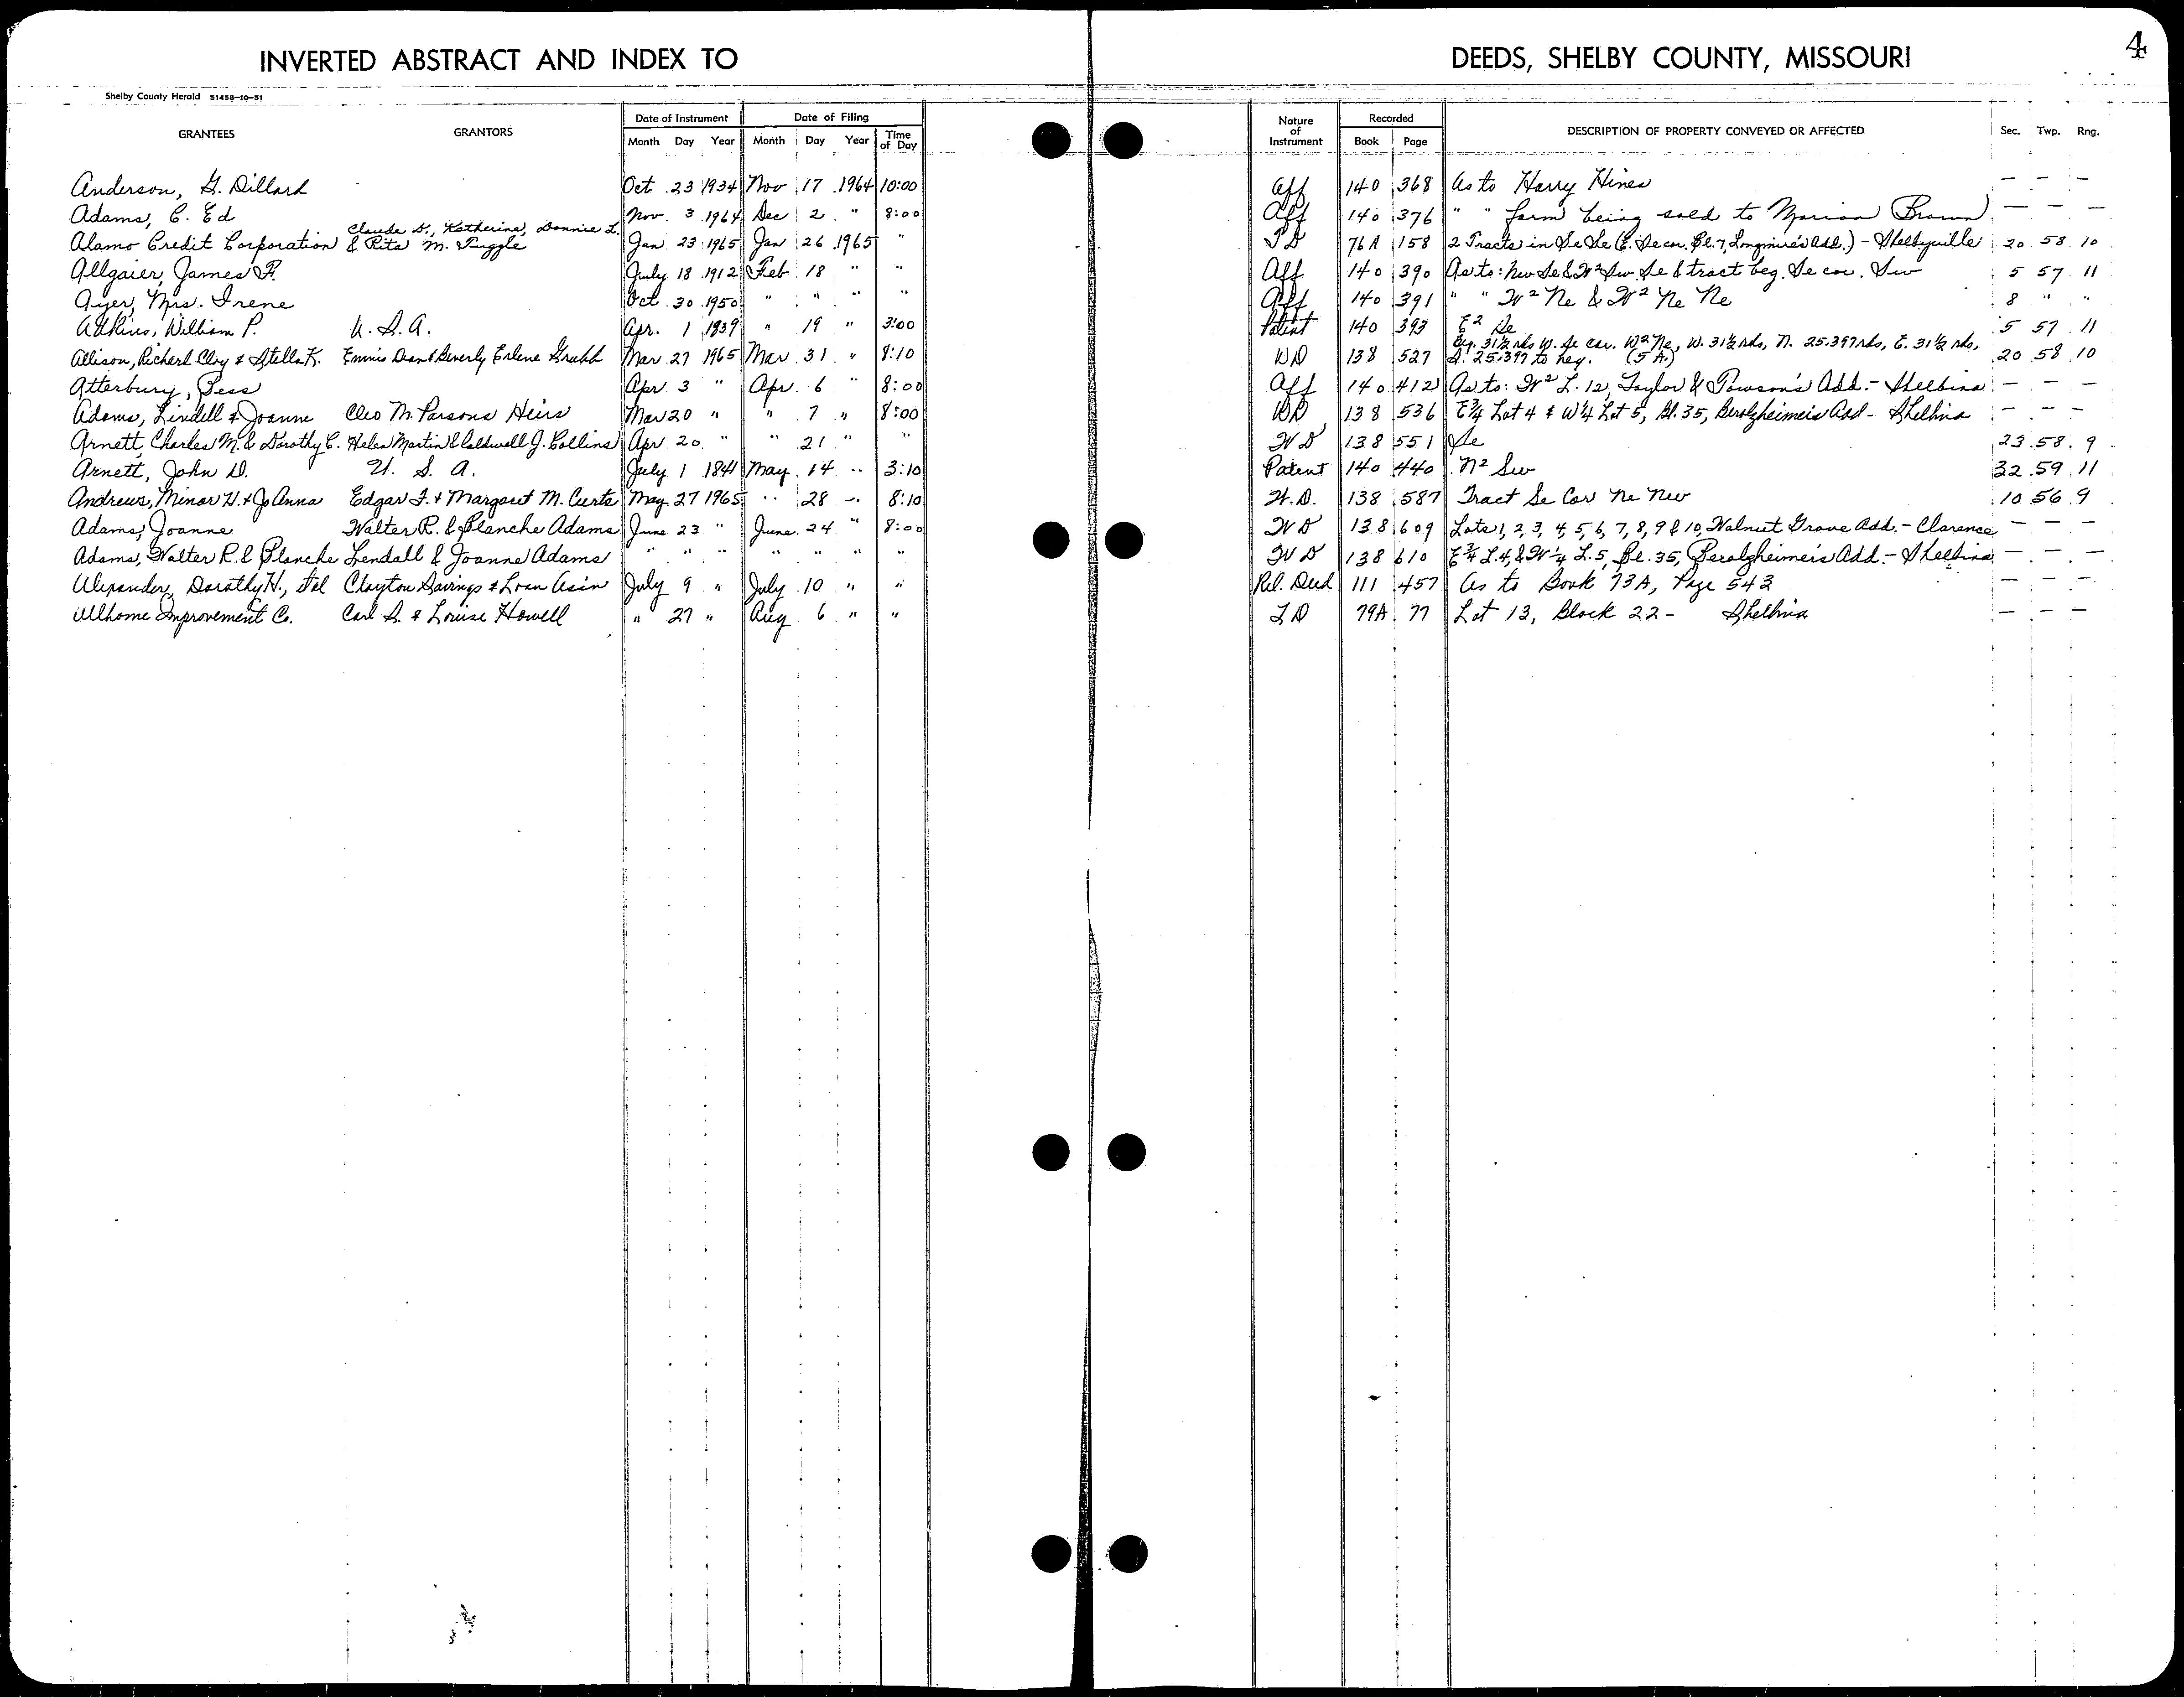 INVERTED ABSTRACT AND INDEX TO DEEDS, SHELBY COUNTY, MISSOURI 4
Shelby County Herald 51458-10-51
GRANTEES GRANTORS Date of Instrument Date of Filing Nature of Instrument Recorded DESCRIPTION OF PROPERTY CONVEYED OR AFFECTED Sec. Twp. Rng.
Month Day Year Month Day Year Time of Day Book Page
Anderson, G. Dillard Oct 23 1934 Nov 17 1964 10:00 Aff 140 368 As to Harry Hines — — —
Adams, C. Ed Nov. 3 1964 Dec 2 " 8:00 Aff 140 376 " " farm being sold to Marion Brown — — —
Claude D., Katherine, Donnie L.
Alamo Credit Corporation & Rita M. Jan 23 1965 Jan 26 1965 " 76A 158 2 Tracts in Se Se (E. Se cor. Bl. 7, Longmire's Add.) - Shelbyville 20 58 10
Allgaier, James F. July 18 1912 Feb 18 " " Aff 140 390 As to: Nw Se & W² Sw Se & tract beg. Se cor. Sw 5 57 11
Ayer, Mrs. Irene Oct 30 1950 " " " " Aff 140 391 " " W² Ne & W² Ne Ne 8 " "
Adkins, William P. U. S. A. Apr. 1 1839 " 19 " 3:00 Patent 140 393 E² Se 5 57 11
Beg. 31½ rds W. Se cor. W² Ne, W. 31½ rds, N. 25.397 rds, E. 31½ rds,
Allison, Richard Cloy & Stella K. Ennis Dean & Beverly Erlene Grubb Mar 27 1965 Mar 31 " 8:10 WD 138 527 S. 25.397 to beg. (5 A.) 20 58 10
Atterbury, Bess Apr. 3 " Apr. 6 " 8:00 Aff 140 412 As to: W² L. 12, Taylor & Towson's Add. - Shelbina — — —
Adams, Lindell & Joanne Cleo M. Parsons Heirs Mar 20 " " 7 " 8:00 WD 138 536 E¾ Lot 4 & W¼ Lot 5, Bl. 35, Berolzheimer's Add - Shelbina — — —
Arnett, Charles M. & Dorothy C. Helen Martin & Caldwell J. Collins Apr. 20 " " 21 " " WD 138 551 Se 23 58 9
Arnett, John D. U. S. A. July 1 1841 May 14 " 3:10 Patent 140 440 N² Sw 32 59 11
Andrews, Minor W. & Jo Anna Edgar F. & Margaret M. Curts May 27 1965 " 28 " 8:10 W.D. 138 587 Tract Se Cor Ne Nw 10 56 9
Adams, Joanne Walter R. & Blanche Adams June 23 " June 24 " 8:00 WD 138 609 Lots 1, 2, 3, 4, 5, 6, 7, 8, 9 & 10, Walnut Grove Add. - Clarence — — —
Adams, Walter R. & Blanche Lendall & Joanne Adams " " " " " " " WD 138 610 E¾ L. 4, & W¼ L. 5, Bl. 35, Berolzheimer's Add. - Shelbina — — —
Alexander, Dorothy H., Etal Clayton Savings & Loan Ass'n July 9 " July 10 " " Rel. Deed 111 457 As to Book 73A, Page 543 — — —
Allhome Improvement Co. Carl S. & Louise Howell " 27 " Aug 6 " " TD 79A 77 Lot 13, Block 22 - Shelbina — — —